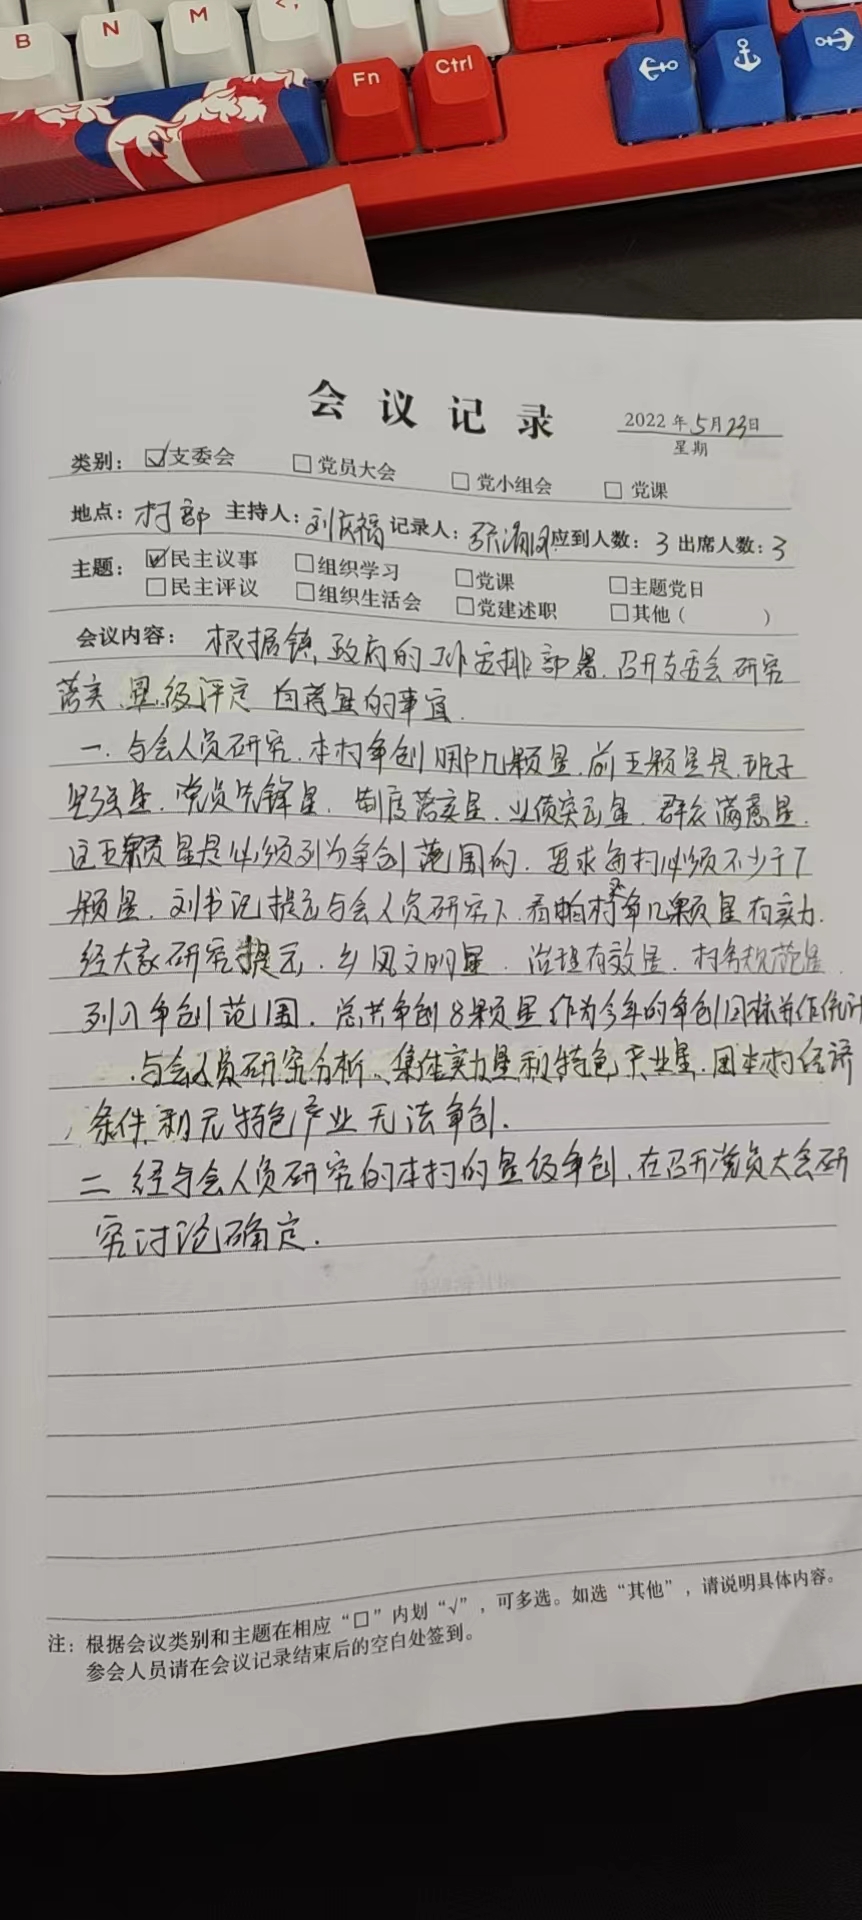 B N M < , Fn Ctrl
会议记录
2022年5月23日
星期
类别： ☑支委会 □党员大会 □党小组会 □党课
地点：村部 主持人：刘庆福 记录人： 应到人数：3 出席人数：3
主题： ☑民主议事 □组织学习 □党课 □主题党日
□民主评议 □组织生活会 □党建述职 □其他（ ）
会议内容： 根据镇政府的工作安排部署，召开支委会研究
落实星级评定 自荐星的事宜.
一. 与会人员研究.本村争创哪几颗星.前五颗星是.班子
坚强星.党员先锋星.制度落实星.业绩突出星.群众满意星.
这五颗星是必须列为争创范围的.要求每村必须不少于7
颗星.刘书记提出与会人员研究下.看咱村争几颗星有实力.
经大家研究提示.乡风文明星.治理有效星.村务规范星
列入争创范围.总共争创8颗星作为今年的争创目标并作统计
.与会人员研究分析、集体实力星和特色产业星.因本村经济
条件和无特色产业无法争创.
二 经与会人员研究的本村的星级争创.在召开党员大会研
究讨论确定.
注：根据会议类别和主题在相应“□”内划“√”，可多选。如选“其他”，请说明具体内容。
参会人员请在会议记录结束后的空白处签到。